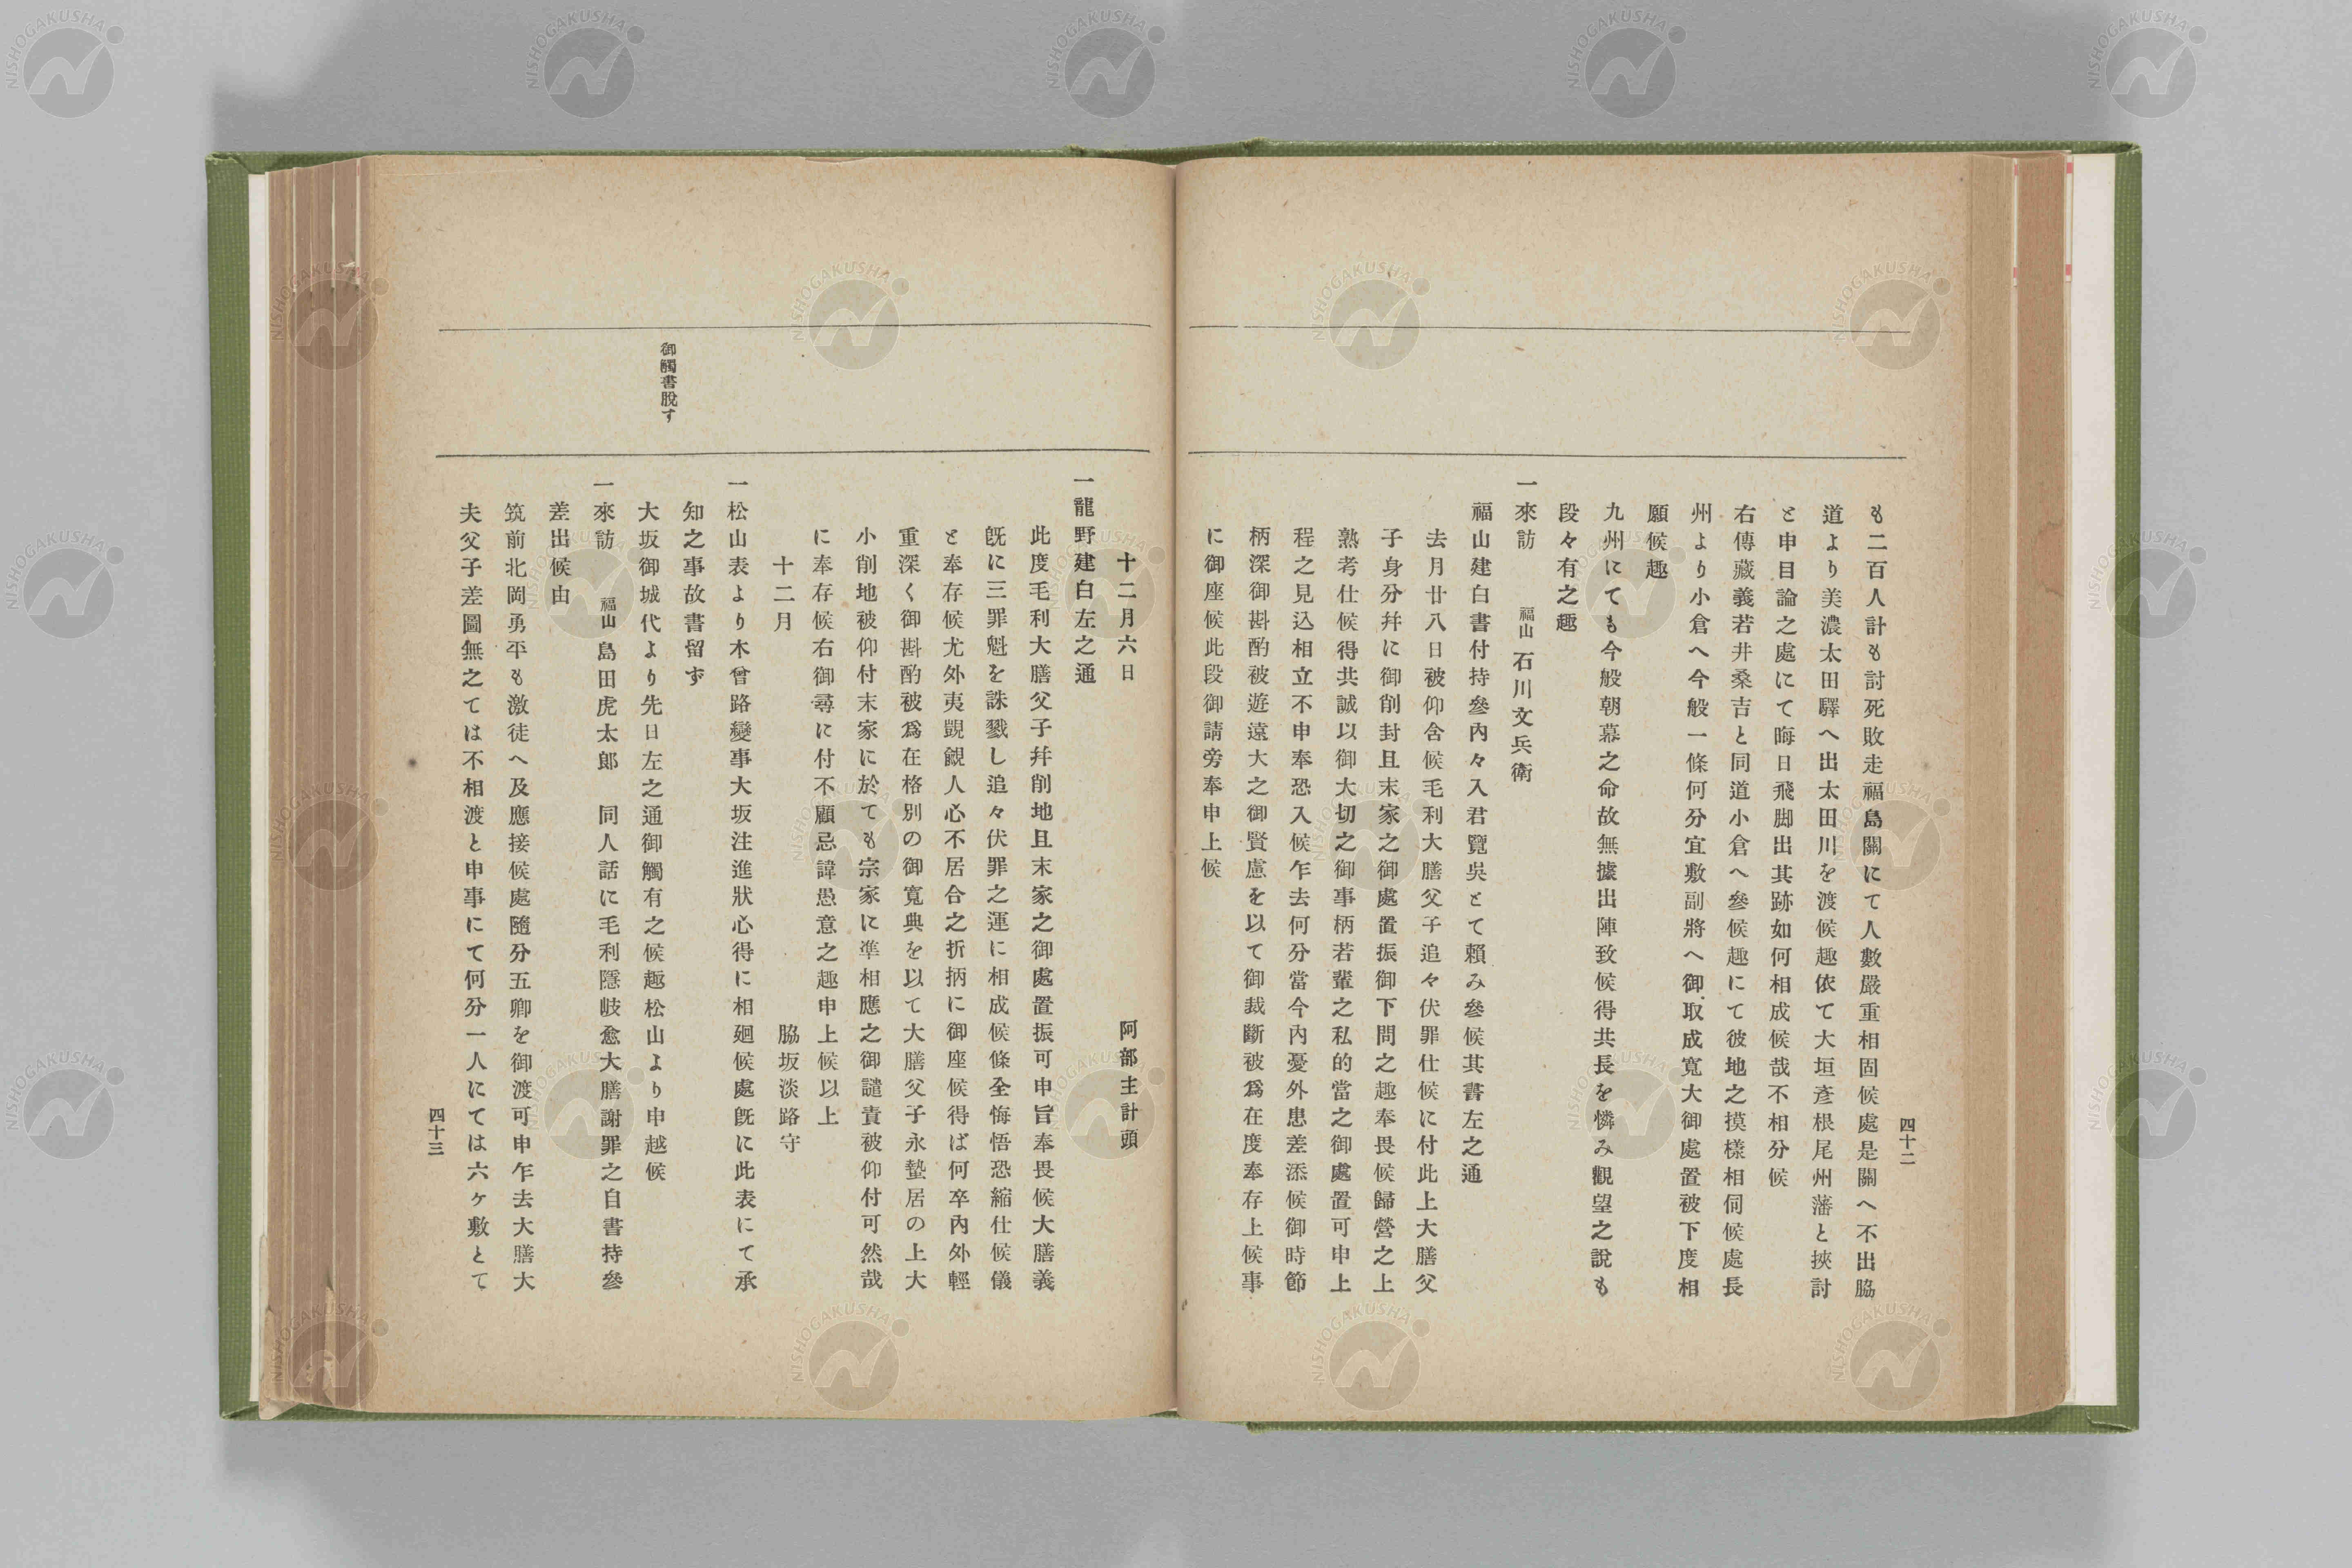 四十二
も二百人計も討死敗走福島關にて人數嚴重相固候處是關へ不出脇
道より美濃太田驛へ出太田川を渡候趣依て大垣彥根尾州藩と挾討
と申目論之處にて晦日飛脚出其跡如何相成候哉不相分候
右傳藏義若井桑吉と同道小倉へ參候趣にて彼地之摸樣相伺候處長
州より小倉へ今般一條何分宜敷副將へ御取成寬大御處置被下度相
願候趣
九州にても今般朝幕之命故無據出陣致候得共長を憐み觀望之說も
段々有之趣
一來訪 福山 石川文兵衛
福山建白書付持參內々入君覽吳とて賴み參候其書左之通
去月廿八日被仰含候毛利大膳父子追々伏罪仕候に付此上大膳父
子身分幷に御削封且末家之御處置振御下問之趣奉畏候歸營之上
熟考仕候得共誠以御大切之御事柄若輩之私的當之御處置可申上
程之見込相立不申奉恐入候乍去何分當今內憂外患差添候御時節
柄深御斟酌被遊遠大之御賢慮を以て御裁斷被爲在度奉存上候事
に御座候此段御請旁奉申上候
十二月六日 阿部主計頭
一龍野建白左之通
此度毛利大膳父子幷削地且末家之御處置振可申旨奉畏候大膳義
旣に三罪魁を誅戮し追々伏罪之運に相成候條全悔悟恐縮仕候儀
と奉存候尤外夷覬覦人心不居合之折柄に御座候得ば何卒內外輕
重深く御斟酌被爲在格別の御寬典を以て大膳父子永蟄居の上大
小削地被仰付末家に於ても宗家に準相應之御譴責被仰付可然哉
に奉存候右御尋に付不顧忌諱愚意之趣申上候以上
十二月 脇坂淡路守
一松山表より木曾路變事大坂注進狀心得に相廻候處旣に此表にて承
知之事故書留ず
御觸書脫す
大坂御城代より先日左之通御觸有之候趣松山より申越候
一來訪 福山 島田虎太郞 同人話に毛利隱岐愈大膳謝罪之自書持參
差出候由
筑前北岡勇平も激徒へ及應接候處隨分五卿を御渡可申乍去大膳大
夫父子差圖無之ては不相渡と申事にて何分一人にては六ヶ敷とて
四十三
NISHOGAKUSHA